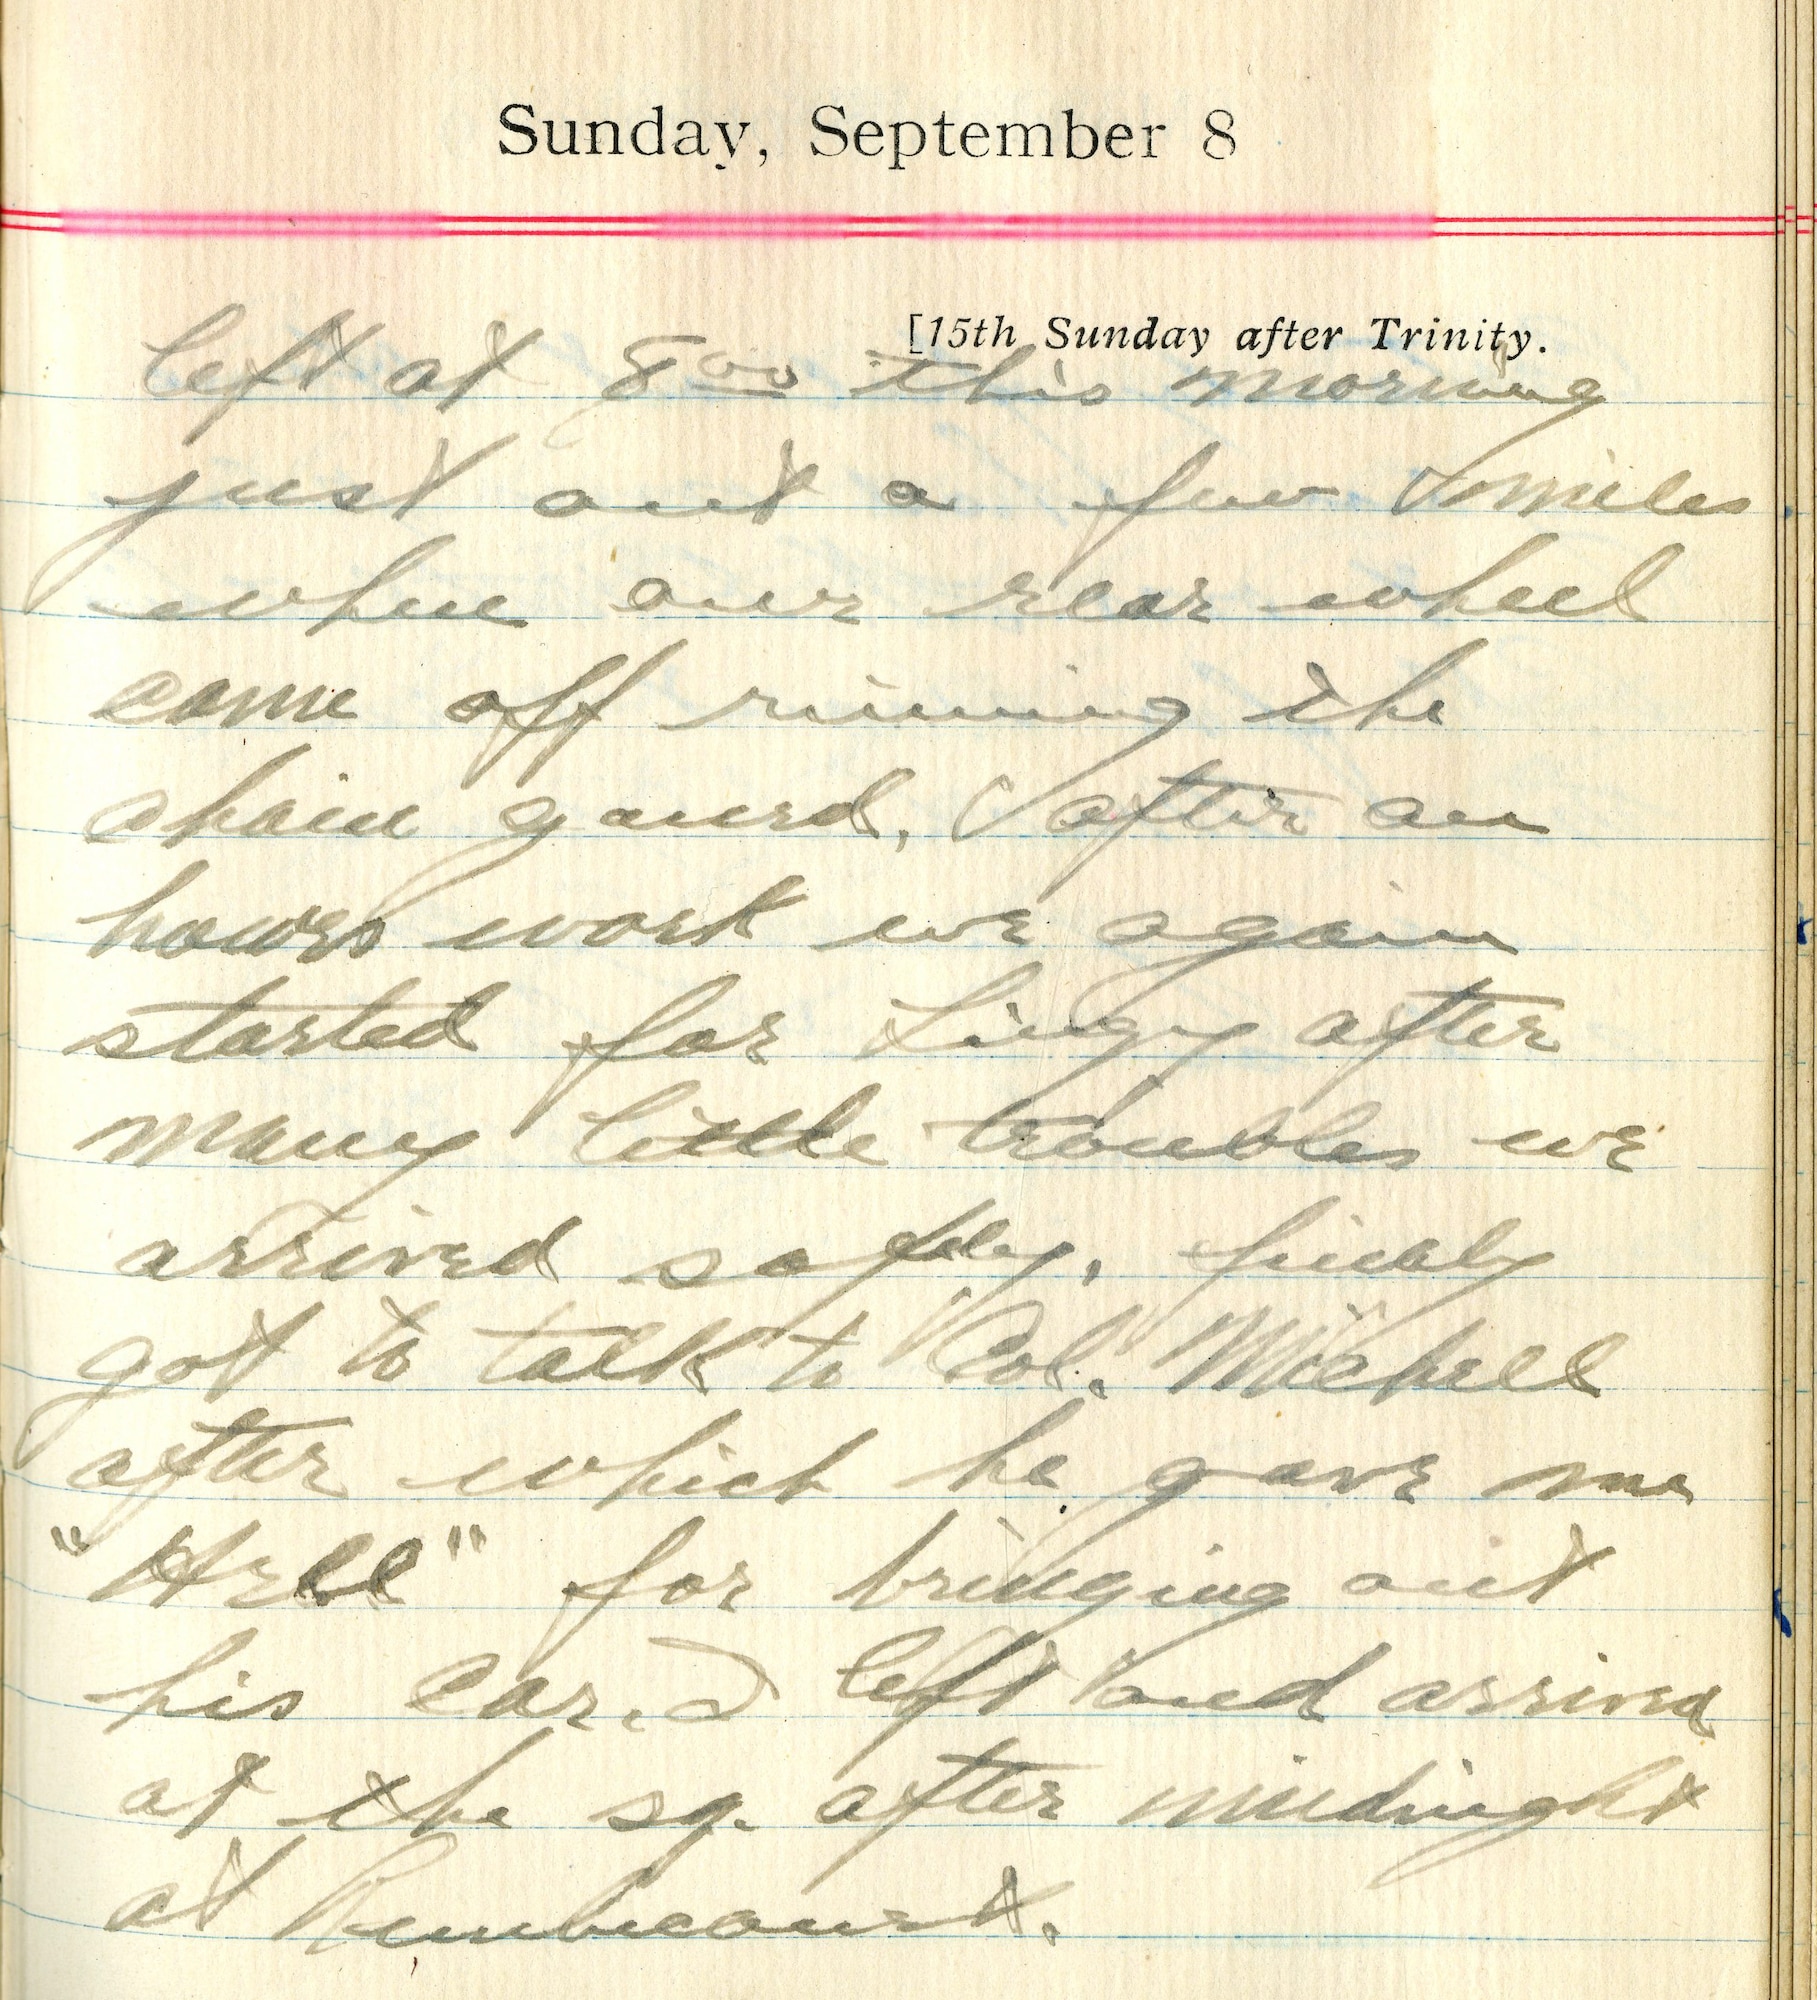 Sunday, September 8
[15th Sunday after Trinity.
left at 8⁰⁰ this morning
just out a few miles
when our rear wheel
came off ruining the
chain gaurd, after an
hours work we again
started for Ligny after
many little troubles we
arrived safely, finaly
got to talk to Col. Michell
after which he gave me
"Hell" for bringing out
his car. I left and arrived
at the sq. after midnight
at Rembercourt.